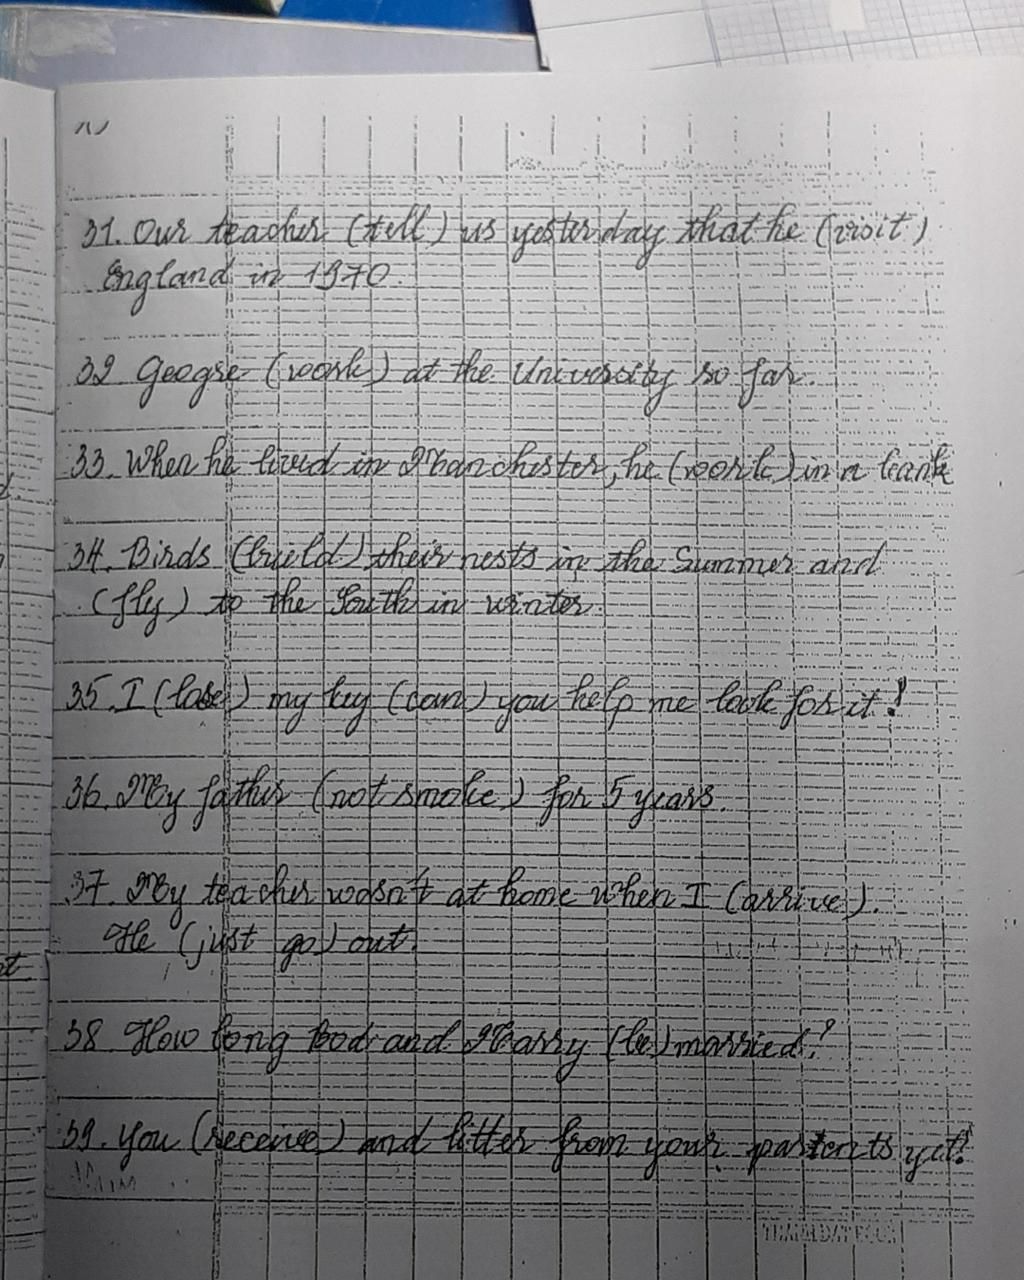 31. Our teacher (tell) us yesterday that he (visit)
England in 1970.
32 Geogre (work) at the University so far.
33. When he lived in Manchester, he (work) in a bank
34. Birds (build) their nests in the Summer and
(fly) to the South in winter.
35. I (lose) my key (can) you help me look for it!
36. My father (not smoke) for 5 years.
37. My teacher wasn't at home when I (arrive).
He (just go) out.
38. How long Bod and Marry (be) married?
39. You (receive) and litter from your partents yet?